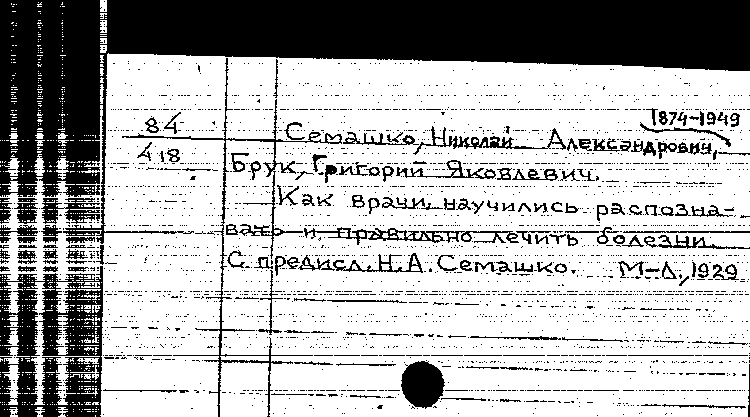 1874-1949
84
Семашко, Николай Александрович,
418
Брук, Григорий Яковлевич.
Как врачи научились распозна-
вать и правильно лечить болезни.
С предисл. Н.А. Семашко. М-Л., 1929